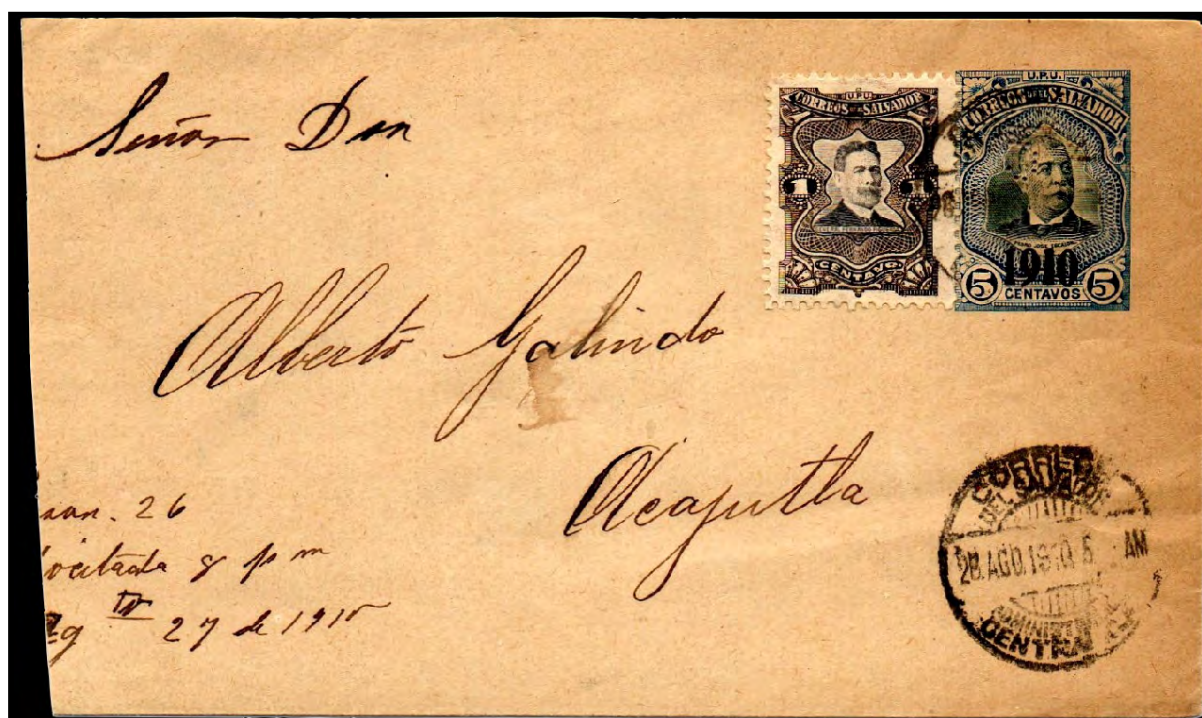 Señor Don
U.P.U.
CORREOS DE EL SALVADOR
1 1
CENTAVO.
U.P.U.
CORREOS DE EL SALVADOR
1910
5 CENTAVOS 5
Alberto Galindo
Acajutla
26
8 p m
27 de 1910
CORREOS
DEL SALVADOR
28.AGO.1910.5 AM
CENTRAL